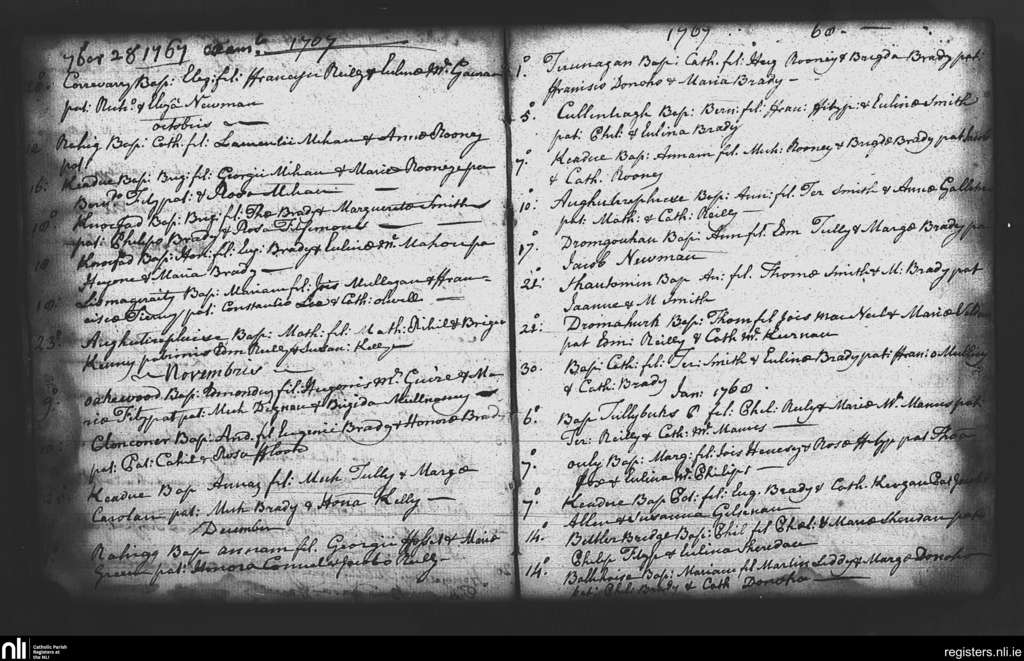 7ber 28 1767 1767
Correvary Bap: Eleg: fil: Francisci Reilly & Eulinæ Mc Gowran
pat: Rich: & Eliza Newman
octobris
12 Rahig Bap: Cath: fil: Laurentii Mihan & Annæ Rooney
pat
16: Keadue Bap: Brig: fil: Georgii Mihan & Mariæ Rooneye pa
Bernd: Fitzpat: & Rose Mihan
18: Knocfad Bap: Brig: fil: Tho: Brady & Margueritæ Smith
pat: Philip Brady & Ros: Fitsimons
18 Knocfad Bap: Hon: fil: Eug: Brady & Eulinæ Mc Mahon pa
Hugone & Maria Brady
18: Lismagiraity Bap: Mariam fil: Jois Mullegan & Fran-
ciscæ Tierny pat: Constantio Lee & Cath:
23: Bap: Math: fil: Math: & Brigid
Kenny patrinis Edm Reilly & Susan: Kellye
Novembris
9: oakewood Bap: Edmondus fil: Hugonis Mc Guire & Ma-
riæ Fitzpat pat: Mich Degnau & Brigida
Clonconer Bap: And. fil Eugenii Brady & Honoræ Brad
pat: Pat: Cahil & Rosa Flood
Keadue Bap Annas fil: Mich Tully & Margæ
Carolan pat: Mich Brady & Hona Kelly
December
Rahigg Bap annam fil: Georgii & Mariæ
Green pat: Honora Connel & Jacobo Reilly
1767 68
1: Bap: Cath: fil: Heug Rooney & Brigda Brady pat:
Francis Donoho & Maria Brady
5: Cullentragh Bap: Bern: fil: Fran: Fitzp: & Eulinæ Smith
pat: Phil: & Eulina Brady
7: Keadue Bap: Annam fil: Mich: Rooney & Brigdæ Brady pat
& Cath: Rooney
10: Bap: Ann: fil: Ter Smith & Annæ
pat: Math: & Cath: Reilly
17: Dromgouhan Bap: Ann fil: Edm Tully & Margæ Brady pa
Jacob Newman
21: Bap An: fil: Thomæ Smith & M: Brady pat
Joanne & M Smith
21: Dromahurk Bap: Thom fil Jois mac Neel & Mariæ
pat Edm: Reilly & Cath Mc Kiernau
30. Bap: Cath: fil: Ter: Smith & Eulinæ Brady pat: Fran: o Mulling
& Cath: Brady
Jan: 1768
6: Bap Tullybuks fil: Phil: Reily & Mariæ Mc Manus pat
Ter: Reilly & Cath: Mc Manus
7: Bap: Marg: fil: Jois Henesy & Rosæ Fitzp pat Tho:
Fox & Eulina Mc Philips
7: Keadue Bap Pat: fil: Eug. Brady & Cath: Kergan Pat
Allen & Susanna Gilsenau
14: Buttler Bridge Bap: Phil fil Phel: & Mariæ Sheridan pat
Philip Fitzp & Eulina Sheridan
14: Bap: Mariam fil Martin Liddy & Marga Donoho
pat: Phil: Brady & Cath Donoho
nli Catholic Parish
Registers at
the NLI
registers.nli.ie